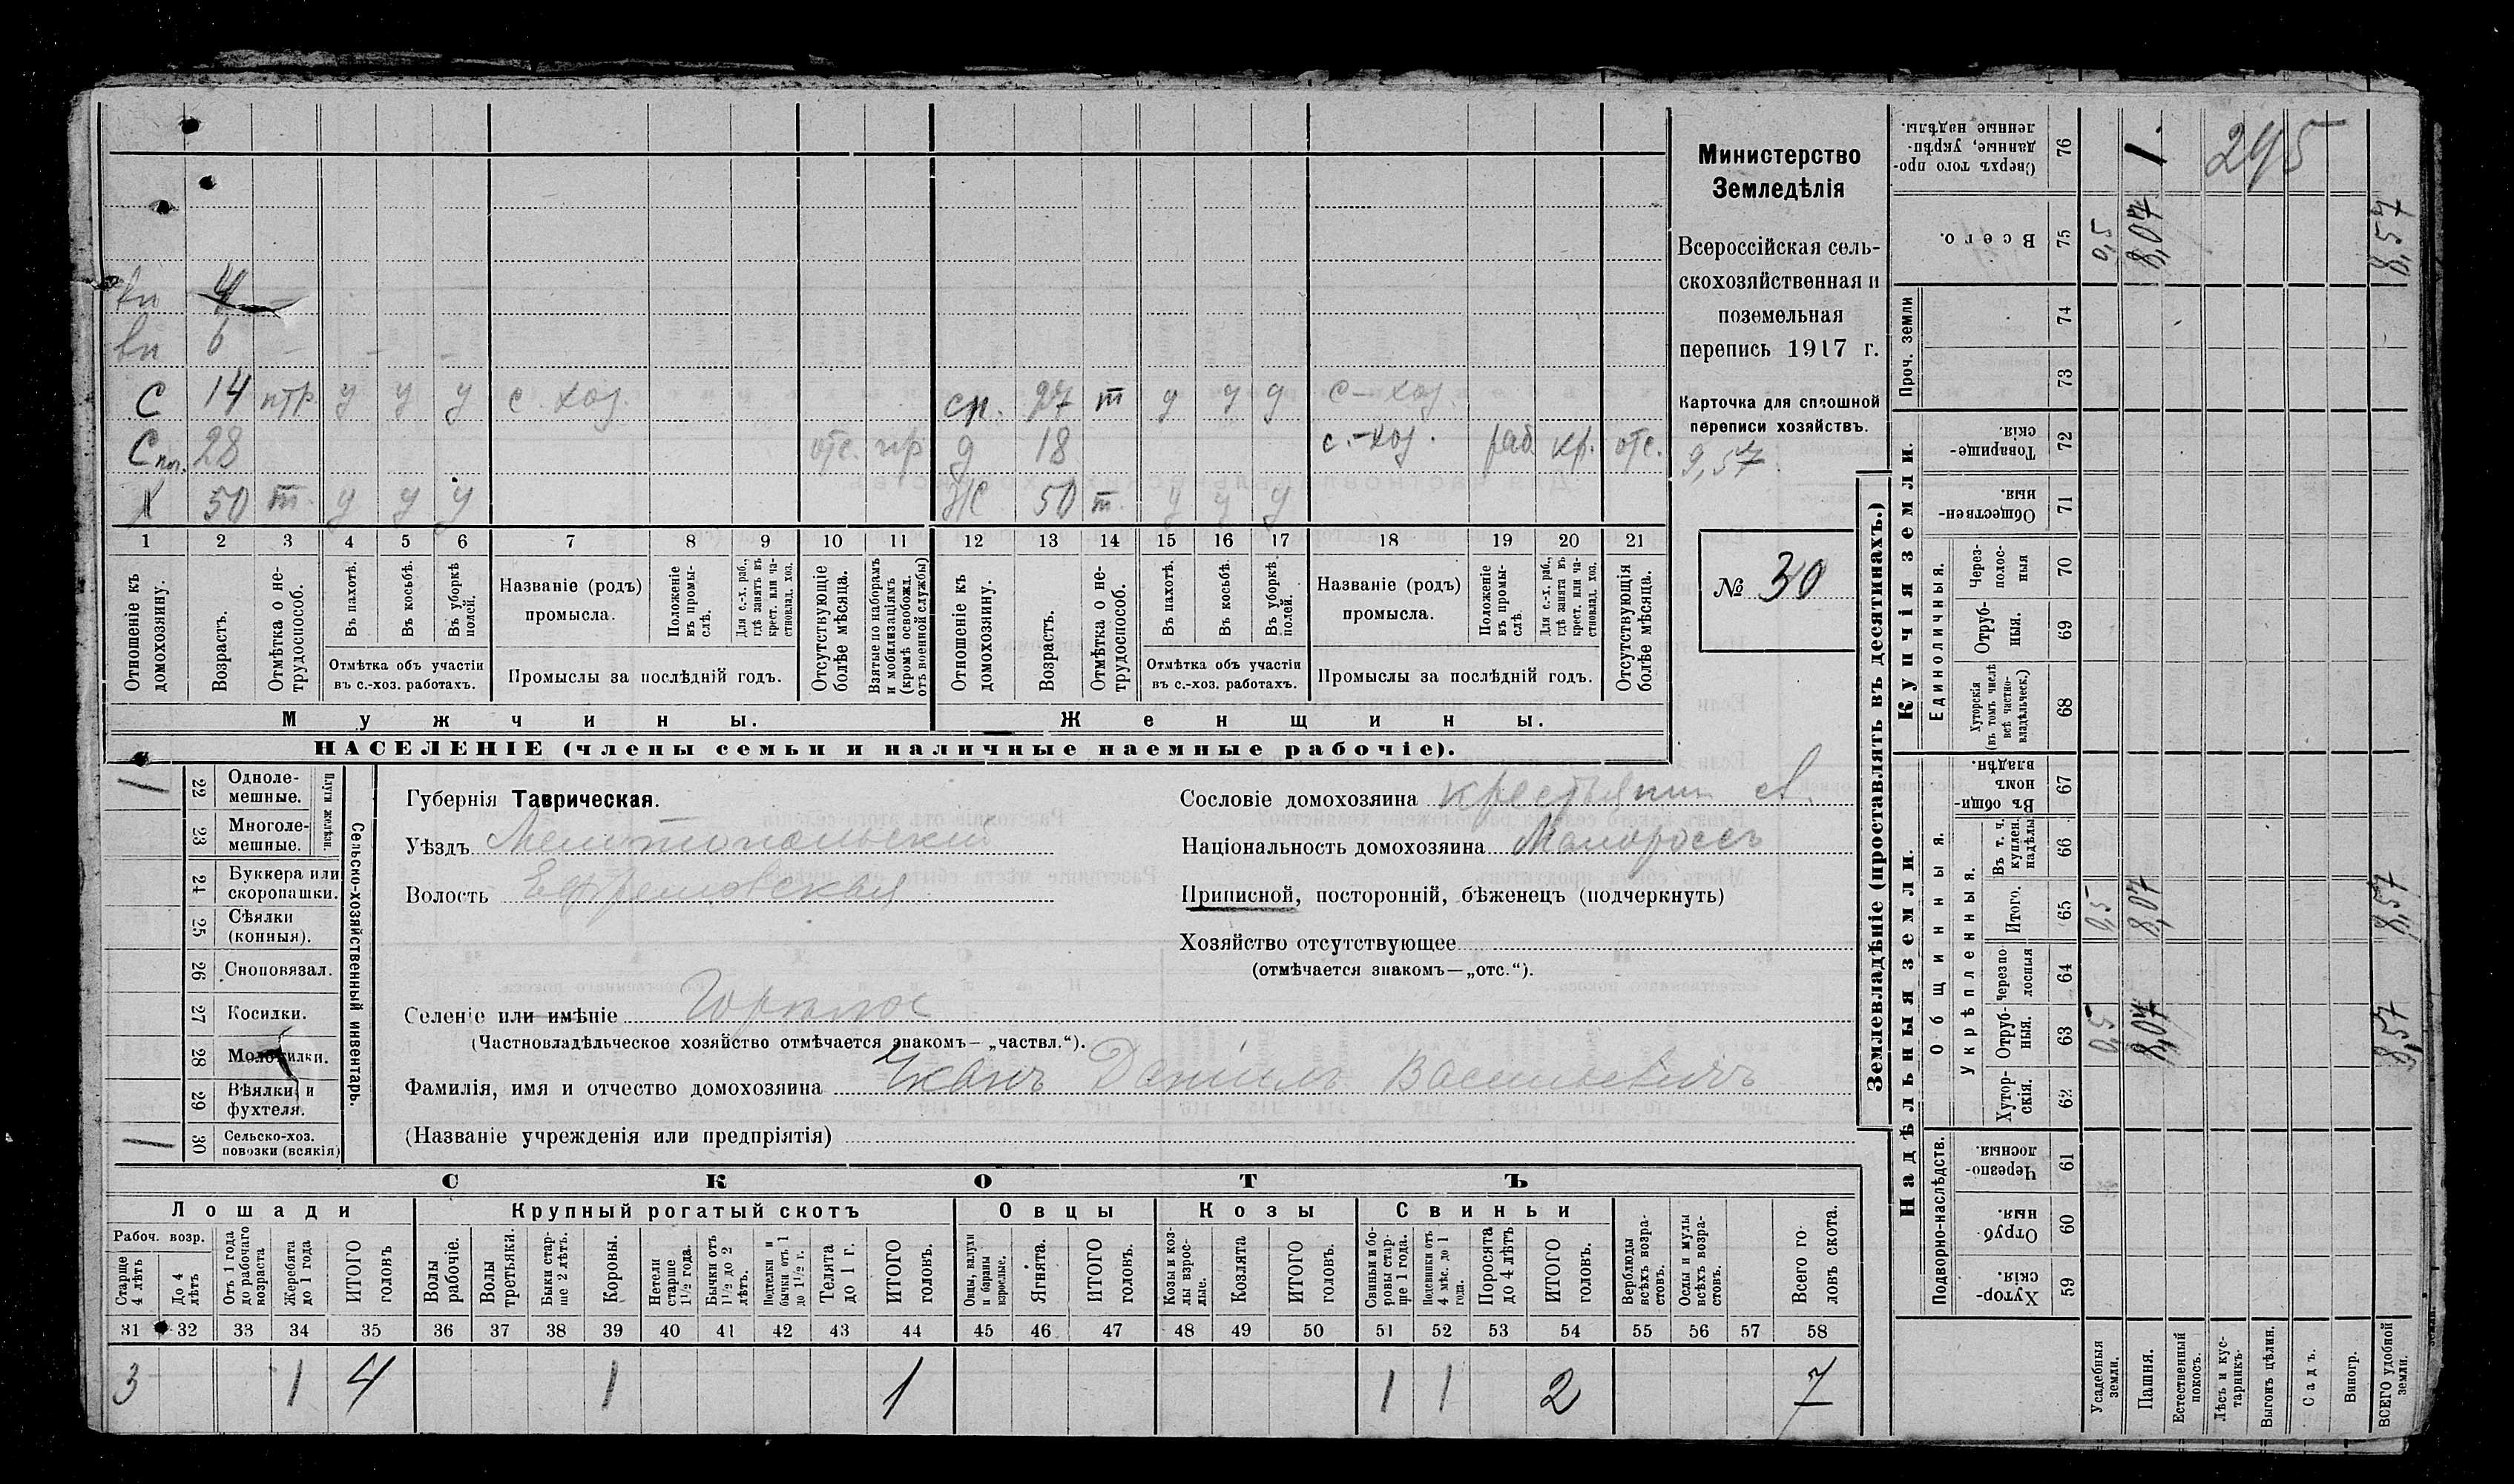 Министерство
Земледѣлія
Всероссійская сель-
скохозяйственная и
поземельная
перепись 1917 г.
Карточка для сплошной
переписи хозяйствъ.
9,57
№ 30
вп 4 —
вп 6 — — —
С 14 птр у у у с. хоз.
сп. 27 т у у у с-хоз.
С пл. 28 отс. пр
д 18 с.-хоз. раб кр. отс.
Х 50 т. у у у
Ж 50 т. у у у
1 2 3 4 5 6 7 8 9 10 11 12 13 14 15 16 17 18 19 20 21
Отношеніе къ домохозяину.
Возрастъ.
Отмѣтка о не-трудоспособ.
Въ пахотѣ.
Въ косьбѣ.
Въ уборкѣ полей.
Отмѣтка объ участіи
въ с.-хоз. работахъ.
Названіе (родъ)
промысла.
Положеніе въ промы-слѣ.
Для с.-х. раб., гдѣ занятъ въ крест. или ча-стновлад. хоз.
Промыслы за послѣдній годъ.
Отсутствующіе болѣе мѣсяца.
Взятые по наборамъ и мобилизаціямъ (кромѣ освобожд. отъ военной службы)
Отношеніе къ домохозяину.
Возрастъ.
Отмѣтка о не-трудоспособ.
Въ пахотѣ.
Въ косьбѣ.
Въ уборкѣ полей.
Отмѣтка объ участіи
въ с.-хоз. работахъ.
Названіе (родъ)
промысла.
Положеніе въ промы-слѣ
Для с.-х. раб., гдѣ занята въ крест. или ча-стновлад. хоз.
Промыслы за послѣдній годъ.
Отсутствующія болѣе мѣсяца.
Мужчины.
Женщины.
НАСЕЛЕНІЕ (члены семьи и наличные наемные рабочіе).
1 22 Одноле-мешные.
23 Многоле-мешные.
Плуги желѣзн.
24 Буккера или скоропашки.
25 Сѣялки (конныя).
26 Сноповязал.
27 Косилки.
28 Молотилки.
29 Вѣялки и фухтеля.
1 30 Сельско-хоз. повозки (всякія)
Сельско-хозяйственный инвентарь.
Губернія Таврическая.
Уѣздъ Мелитопольский
Волость Ефремовская
Селеніе или имѣніе Горьлое
(Частновладѣльческое хозяйство отмѣчается знакомъ—„частвл.“).
Фамилія, имя и отчество домохозяина Чканъ Даніилъ Васильевичъ
(Названіе учрежденія или предпріятія)
Сословіе домохозяина крестьянин
Національность домохозяина Малороссъ
Приписной, посторонній, бѣженецъ (подчеркнуть)
Хозяйство отсутствующее
(отмѣчается знакомъ—„отс.“).
СКОТЪ
Лошади Крупный рогатый скотъ Овцы Козы Свиньи
Рабоч. возр.
Старше 4 лѣтъ
До 4 лѣтъ
Отъ 1 года до рабочаго возраста
Жеребята до 1 года
ИТОГО головъ
Волы рабочіе.
Волы третьяки.
Быки стар-ше 2 лѣтъ.
Коровы.
Нетели старше 1½ года.
Бычки отъ 1½ до 2 лѣтъ.
Подтелки и бычки отъ 1 до 1½ г.
Телята до 1 г.
ИТОГО головъ.
Овцы, валухи и бараны взрослые.
Ягнята.
ИТОГО головъ.
Козы и коз-лы взрос-лые.
Козлята
ИТОГО головъ.
Свиньи и бо-ровы стар-ше 1 года.
Подсвинки отъ 4 мѣс. до 1 года.
Поросята до 4 лѣтъ
ИТОГО головъ.
Верблюды всѣхъ возра-стовъ.
Ослы и мулы всѣхъ возра-стовъ.
Всего го-ловъ скота.
31 32 33 34 35 36 37 38 39 40 41 42 43 44 45 46 47 48 49 50 51 52 53 54 55 56 57 58
3 1 4 1 1 1 1 2 7
Землевладѣніе (проставлять въ десятинахъ.)
Купчія земли.
Надѣльныя земли.
Проч. земли
Единоличныя.
Общинныя.
Укрѣпленныя.
Подворно-наслѣдств.
Сверхъ того про-данные, укрѣп-ленные надѣлы. 76
Всего. 75 0,5 8,07 8,57
74
73
Товарище-скія. 72
Обществен-ныя. 71
Через-полос-ныя 70
Отруб-ныя. 69
Хуторскія (въ томъ числѣ всѣ частно-владѣльческ.) 68
Въ общи-номъ владѣн. 67
Въ т. ч. куплен. надѣлы 66
Итого. 65 0,5 8,07 8,57
Черезпо лосныя 64
Отруб-ныя. 63 0,5 8,07 8,57
Хутор-скія. 62
Черезпо-лосныя. 61
Отруб ныя. 60
Хутор-скія. 59
Усадебныя земли.
Пашня.
Естественный покосъ.
Лѣсъ и кус-тарникъ.
Выгонъ цѣлин.
Садъ.
Виногр.
ВСЕГО удобной земли.
1.
295